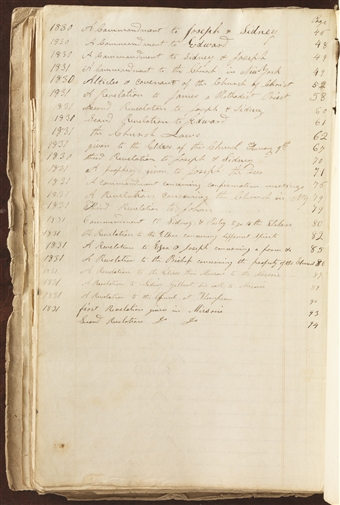 Page
1830 A Commandment to Joseph & Sidney 46
1830 A Commandment to Edward 48
1830 A Commandment to Sidney & Joseph 49
1831 A Commandment to the Church in New York 49
1830 Articles & Covenants of the Church of Christ 52
1831 A Revelation to James a Methodist Priest 58
1831 Second Revelation to Joseph & Sidney 60
1831 Second Revelation to Edward 61
1831 The Church Laws 62
1831 given to the Elders of the Church 67
1830 third Revelation to Joseph & Sidney 70
1831 A prophecy given to Joseph the Seer 71
1831 A commandment concerning confirmation meetings 75
1831 A Revelation concerning the Church in
1831 Revelation to John 79
1831 Commandment to Sidney & 80
1831 A Revelation to the Elders concerning 82
1831 A Revelation to Ezra & Joseph concerning a farm & 85
1831 A Revelation to the Bishop concerning the property of the Church 86
1831 A Revelation to the Elders
1831 A Revelation to Sidney Gilbert
1831 A Revelation to the Church at Thompson
1831 first Revelation given in Missouri 93
Second Revelation Do Do 94